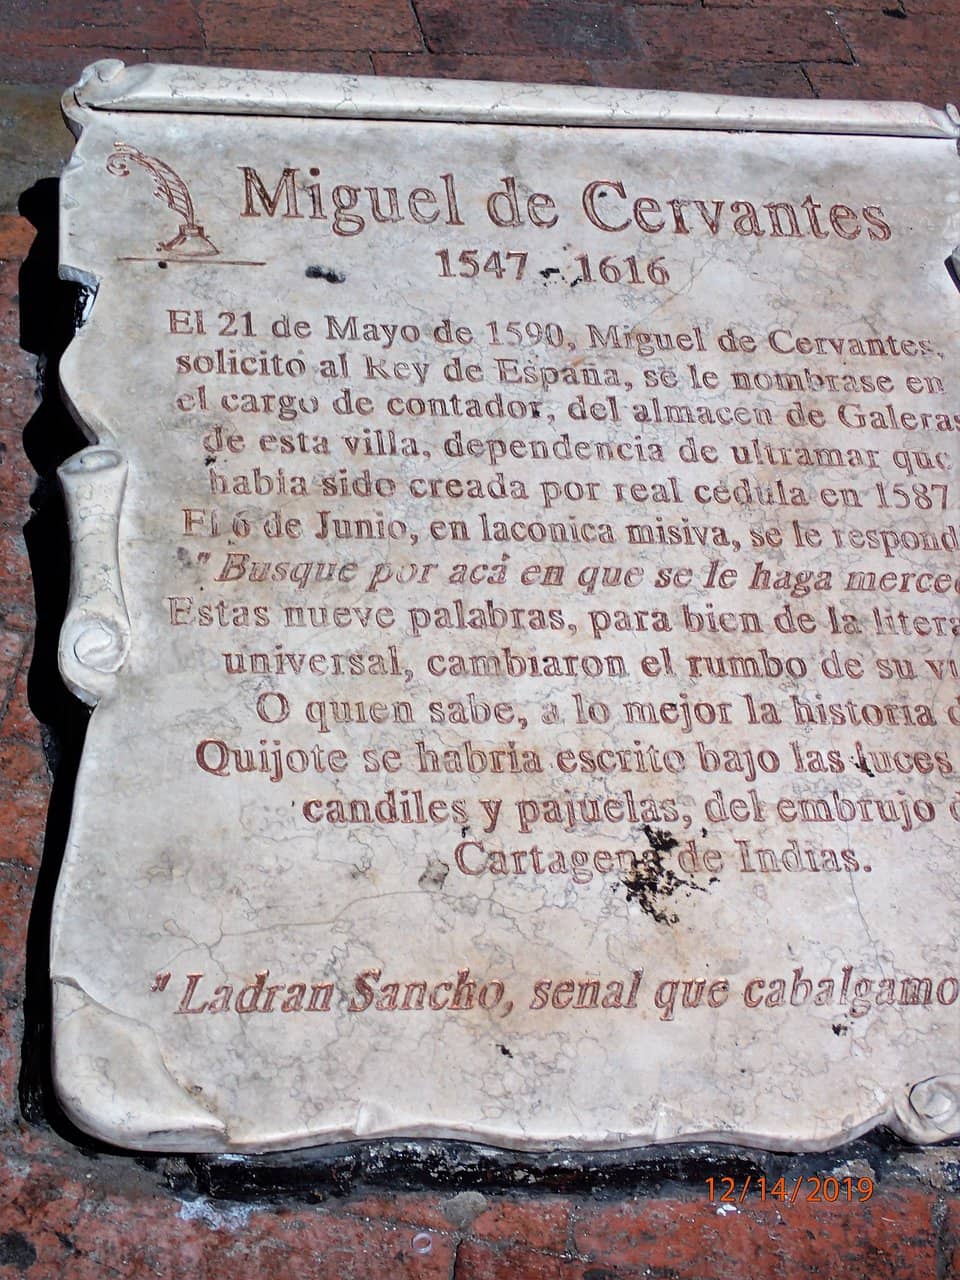 Miguel de Cervantes
1547 - 1616
El 21 de Mayo de 1590, Miguel de Cervantes,
solicitó al Rey de España, se le nombrase en
el cargo de contador, del almacen de Galeras
de esta villa, dependencia de ultramar que
habia sido creada por real cedula en 1587
El 6 de Junio, en laconica misiva, se le respond
"Busque por acá en que se le haga merce
Estas nueve palabras, para bien de la litera
universal, cambiaron el rumbo de su vi
O quien sabe, a lo mejor la historia d
Quijote se habria escrito bajo las luces
candiles y pajuelas, del embrujo d
Cartagena de Indias.
"Ladran Sancho, senal que cabalgamo
12/14/2019